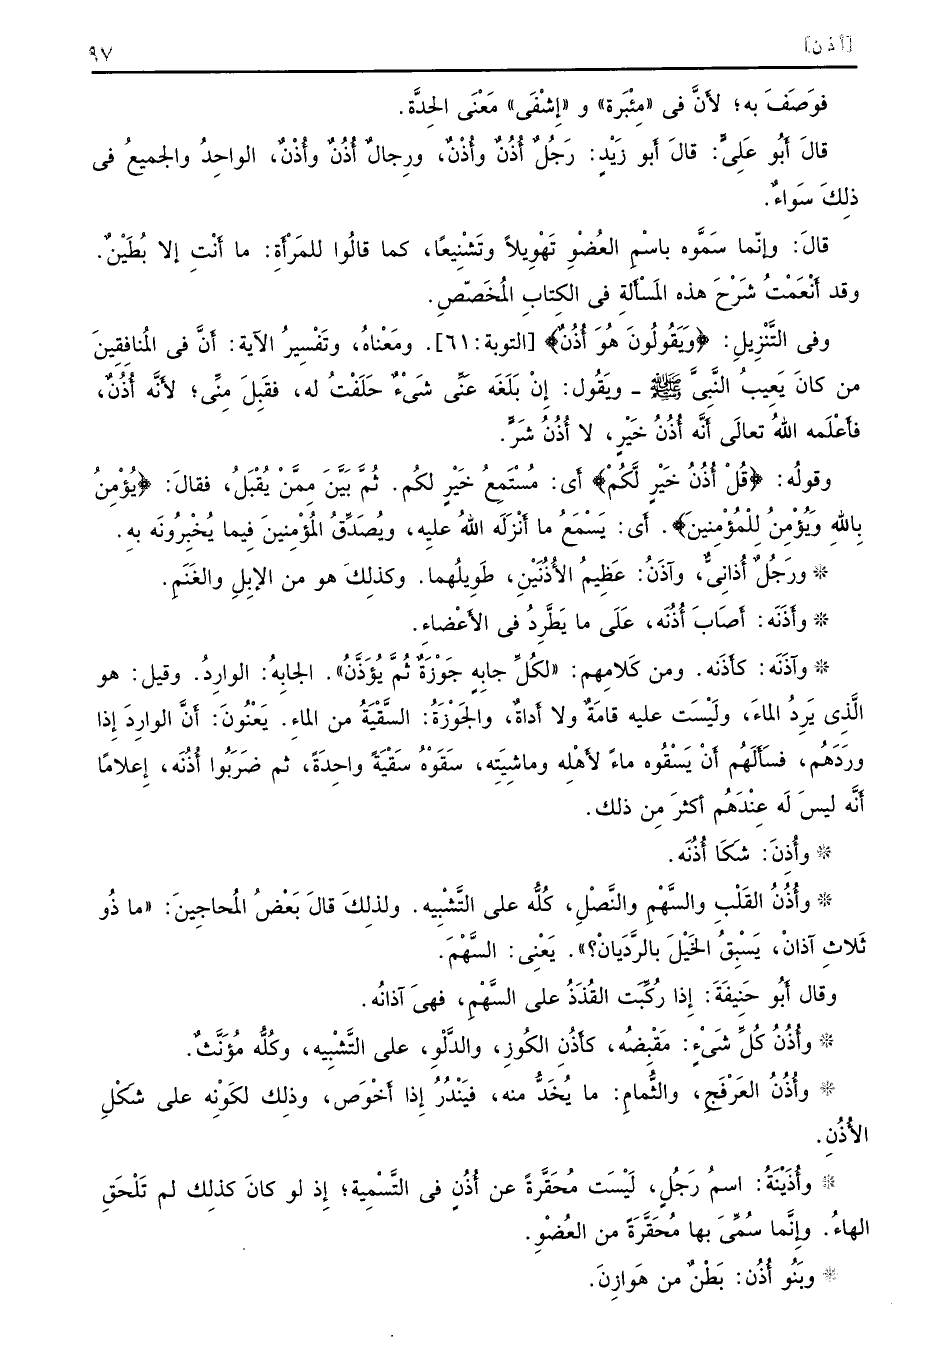 [أ ذ ن] ٩٧
فوَصَفَ به؛ لأنَّ فى «مِئْبَرة» و «إشْفَى» مَعْنَى الحِدَّة.
قالَ أبُو عَلِىٍّ: قالَ أبو زَيْدٍ: رَجُلٌ أُذُنٌ وأُذْنٌ، ورجالٌ أُذُنٌ وأُذْنٌ، الواحِدُ والجميعُ فى
ذلِكَ سَواءٌ.
قالَ: وإنّما سَمَّوه باسْمِ العُضْوِ تَهْوِيلاً وتَشْنِيعًا، كما قالُوا للمَرْأَةِ: ما أنْتِ إلا بُطَيْنٌ.
وقد أنْعَمْتُ شَرْحَ هذه المَسْألةِ فى الكِتابِ المُخَصّصِ.
وفى التَّنْزِيلِ: ﴿وَيَقُولُونَ هُوَ أُذُنٌ﴾ [التوبة:٦١]. ومَعْناهُ، وتَفْسِيرُ الآية: أنَّ فى المُنافِقِينَ
من كانَ يَعِيبُ النَّبِىَّ ﷺ ـ ويَقُول: إنْ بَلَغَه عَنِّى شَىْءٌ حَلَفْتُ له، فقَبِلَ مِنِّى؛ لأنَّه أُذُنٌ،
فأعْلَمه اللهُ تعالَى أنَّه أُذُنُ خَيْرٍ، لا أُذُنُ شَرٍّ.
وقولُه: ﴿قُلْ أُذُنُ خَيْرٍ لَّكُمْ﴾ أى: مُسْتَمِعُ خَيْرٍ لكم. ثُمَّ بَيَّنَ مِمَّنْ يُقْبَلُ، فقالَ: ﴿يُؤْمِنُ
بِاللهِ وَيُؤْمِنُ لِلْمُؤْمِنينَ﴾. أى: يَسْمَعُ ما أنْزَلَه اللهُ عليه، ويُصَدِّقُ المُؤْمِنينَ فيما يُخْبِرُونَه بِه.
* ورَجُلٌ أُذانِىٌّ، وآذَنُ: عَظِيمُ الأُذُنَيْنِ، طَوِيلُهما. وكذلِكَ هو من الإبِلِ والغَنَم.
* وأذَنَه: أصَابَ أُذُنَه، عَلَى ما يَطَّرِدُ فى الأعْضاء.
* وآذَنَه: كأذَنه. ومن كَلامِهم: «لكُلِّ جابِهٍ جَوْزَةٌ ثُمَّ يُؤَذَّنُ». الجابِهُ: الوارِدُ. وقيل: هو
الَّذى يَرِدُ الماءَ، ولَيْسَت عليه قامَةٌ ولا أداةٌ، والجَوْزَةُ: السَّقْيَةُ من الماءِ. يَعْنُونَ: أنَّ الوارِدَ إذا
ورَدَهُم، فسَألَهُم أنْ يَسْقُوه ماءً لأهْلِه وماشِيَتِه، سَقَوْهُ سَقْيَةً واحِدَةً، ثم ضَرَبُوا أُذُنَه، إعلامًا
أنَّه ليسَ لَه عِنْدَهُم أكثَرَ مِن ذلك.
* وأُذِنَ: شَكَا أُذُنَه.
* وأُذُنُ القَلْبِ والسَّهْمِ والنَّصْلِ، كلُّه على التَّشْبِيه. ولذلِكَ قالَ بَعْضُ المُحاجِينَ: «ما ذو
ثَلاثِ آذانْ، يَسْبِقُ الخَيْلَ بالرَّدَيانْ؟». يَعْنِى: السَّهْمَ.
وقال أبُو حَنِيفَةَ: إذا رُكِّبَت القُذَذُ على السَّهْمِ، فهىَ آذانُه.
* وأُذُنُ كُلِّ شَىْءٍ: مَقْبِضُه، كأذُنِ الكُوزِ، والدَّلْوِ، على التَّشْبِيه، وكلُّه مُؤَنَّثٌ.
* وأُذُنُ العَرْفَجِ، والثُّمام: ما يُخَدُّ منه، فيَنْدُرُ إذا أخْوَصَ، وذلك لكَوْنِه على شكْلِ
الأُذُنِ.
* وأُذَيْنَةُ: اسمُ رَجُلٍ، لَيْسَت مُحَقَّرَةً عن أُذُنٍ فى التَّسْمِية؛ إذ لو كانَ كذلك لم تَلْحَقِ
الهاءُ. وإنَّما سُمِّىَ بها مُحَقَّرَةً من العُضْوِ.
* وبَنُو أُذُن: بَطْنٌ من هَوازِنَ.